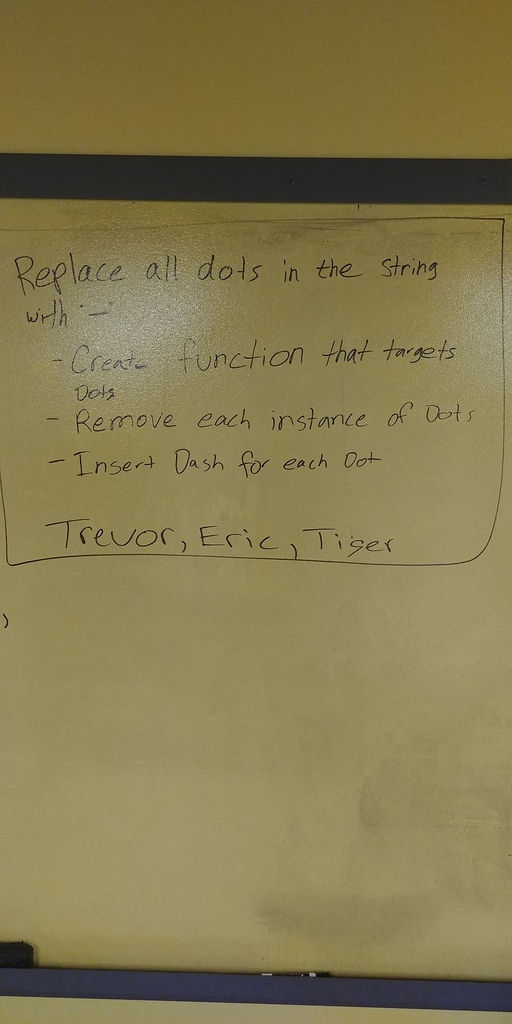 Replace all dots in the string
with '-'
- Create function that targets
Dots
- Remove each instance of Dots
- Insert Dash for each Dot
Trevor, Eric, Tiger